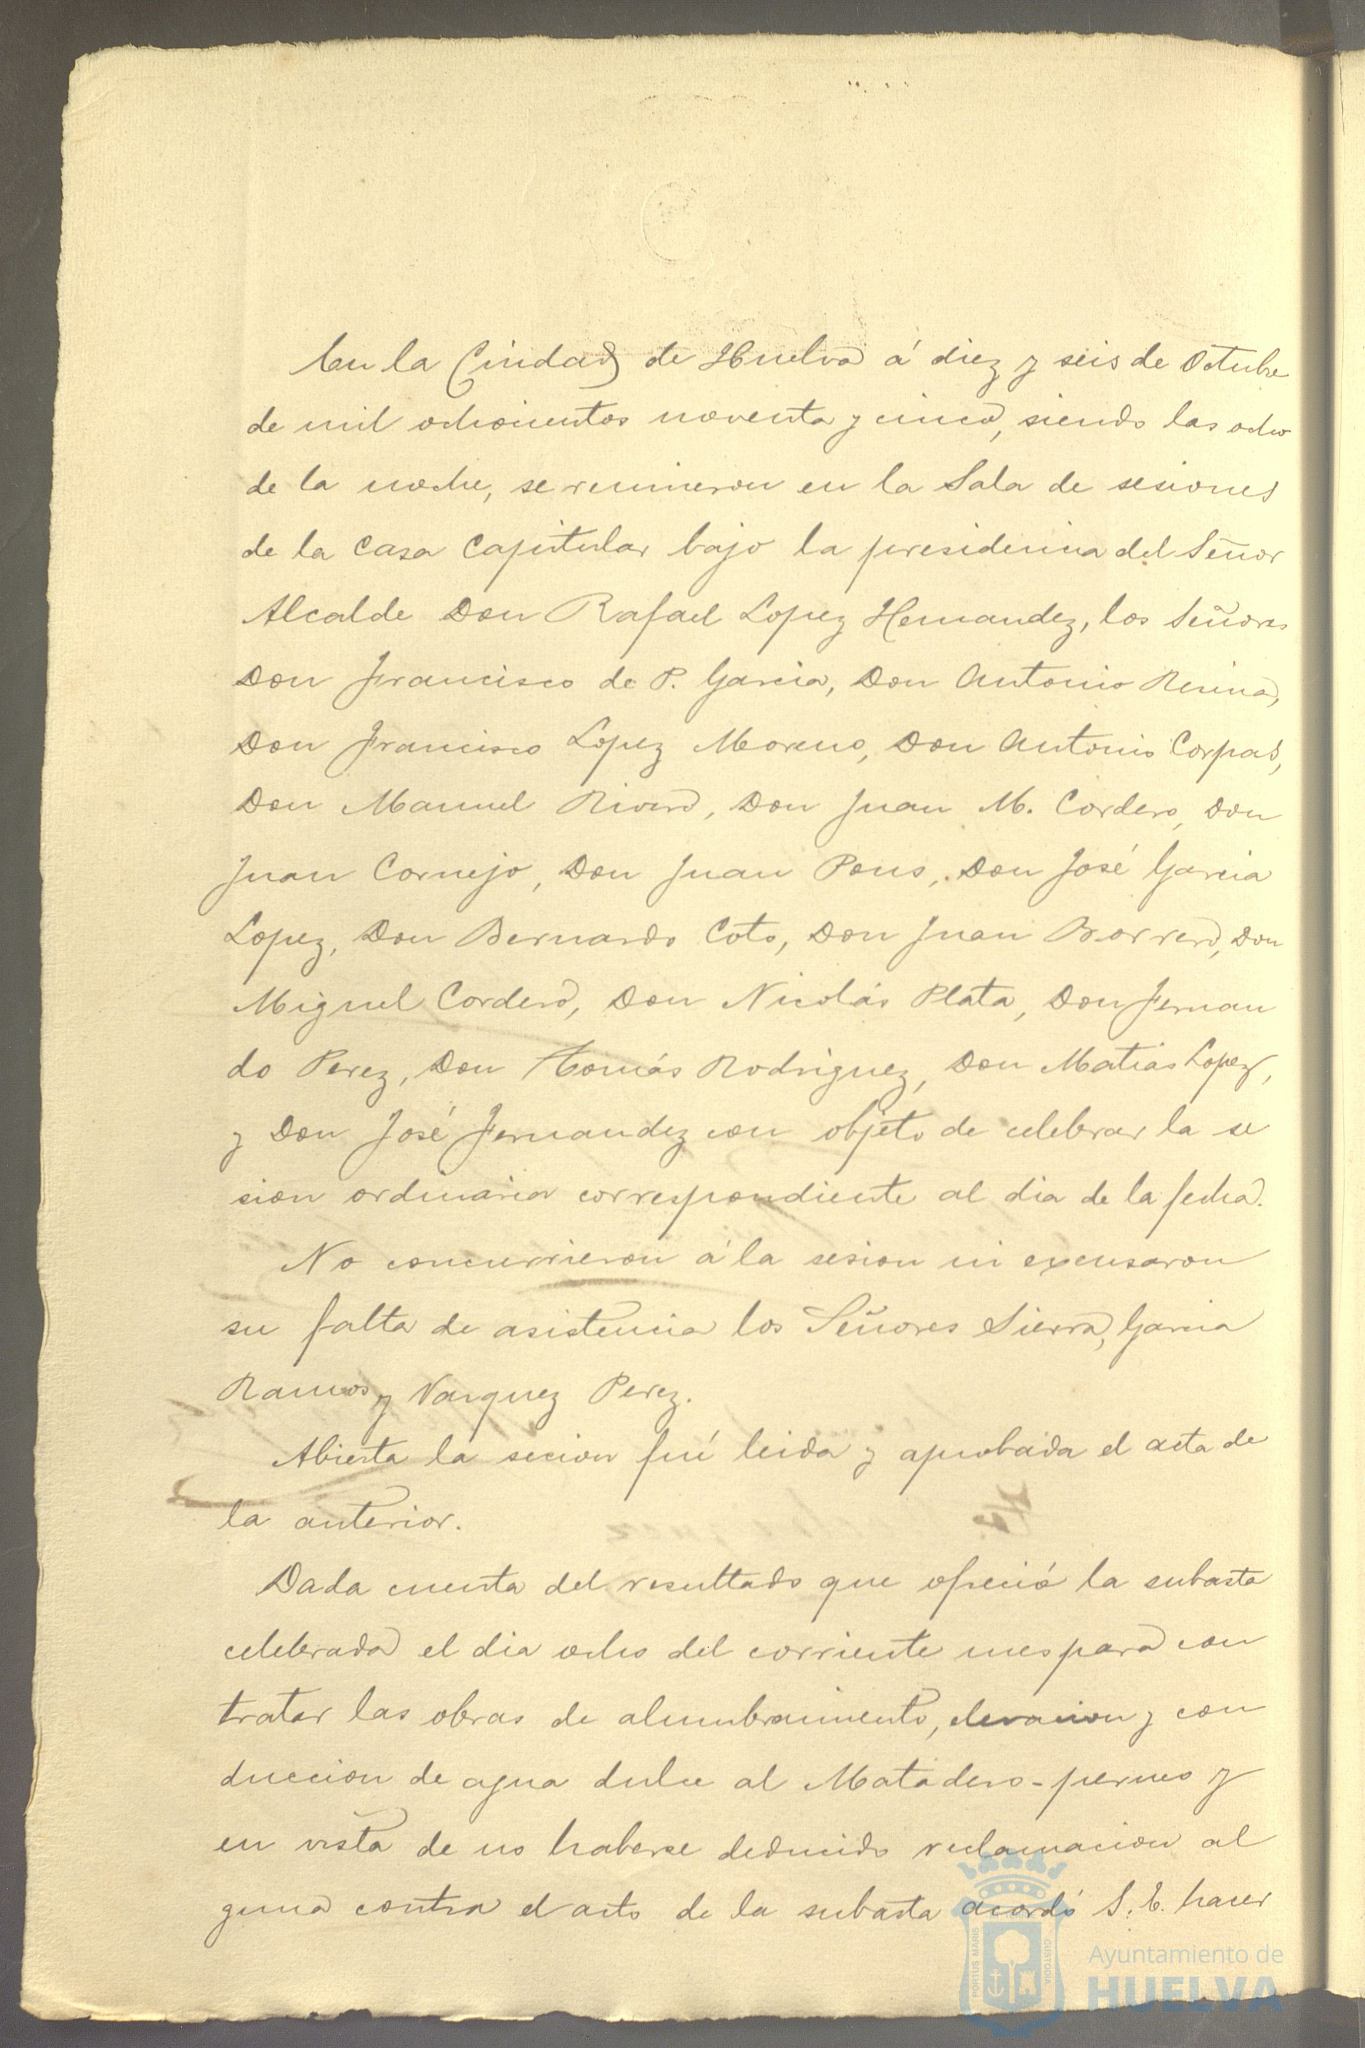 En la Ciudad de Huelva á diez y seis de Octubre
de mil ochocientos noventa y cinco, siendo las ocho
de la noche, se reunieron en la Sala de sesiones
de la Casa Capitular bajo la presidencia del Señor
Alcalde Don Rafael Lopez Hernandez, los Señores
Don Francisco de P. Garcia, Don Antonio Resina,
Don Francisco Lopez Moreno, Don Antonio Corpas,
Don Manuel Rivero, Don Juan M. Cordero, Don
Juan Cornejo, Don Juan Pons, Don José Garcia
Lopez, Don Bernardo Coto, Don Juan Borrero, Don
Miguel Cordero, Don Nicolás Plata, Don Fernan
do Perez, Don Tomás Rodriguez, Don Matias Lopez,
y Don José Fernandez con objeto de celebrar la se
sion ordinaria correspondiente al dia de la fecha.
No concurrieron á la sesion ni excusaron
su falta de asistencia los Señores Sierra, Garcia
Ramos y Vazquez Perez.
Abierta la secion fué leida y aprobada el acta de
la anterior.
Dada cuenta del resultado que ofreció la subasta
celebrada el dia ocho del corriente mes para con
tratar las obras de alumbramiento, elevacion y con
duccion de agua dulce al Matadero-publico y
en vista de no haberse deducido reclamacion al
guna contra el acto de la subasta acordó S. E. hacer
PORTUS MARIS CUSTODIA
Ayuntamiento de
HUELVA